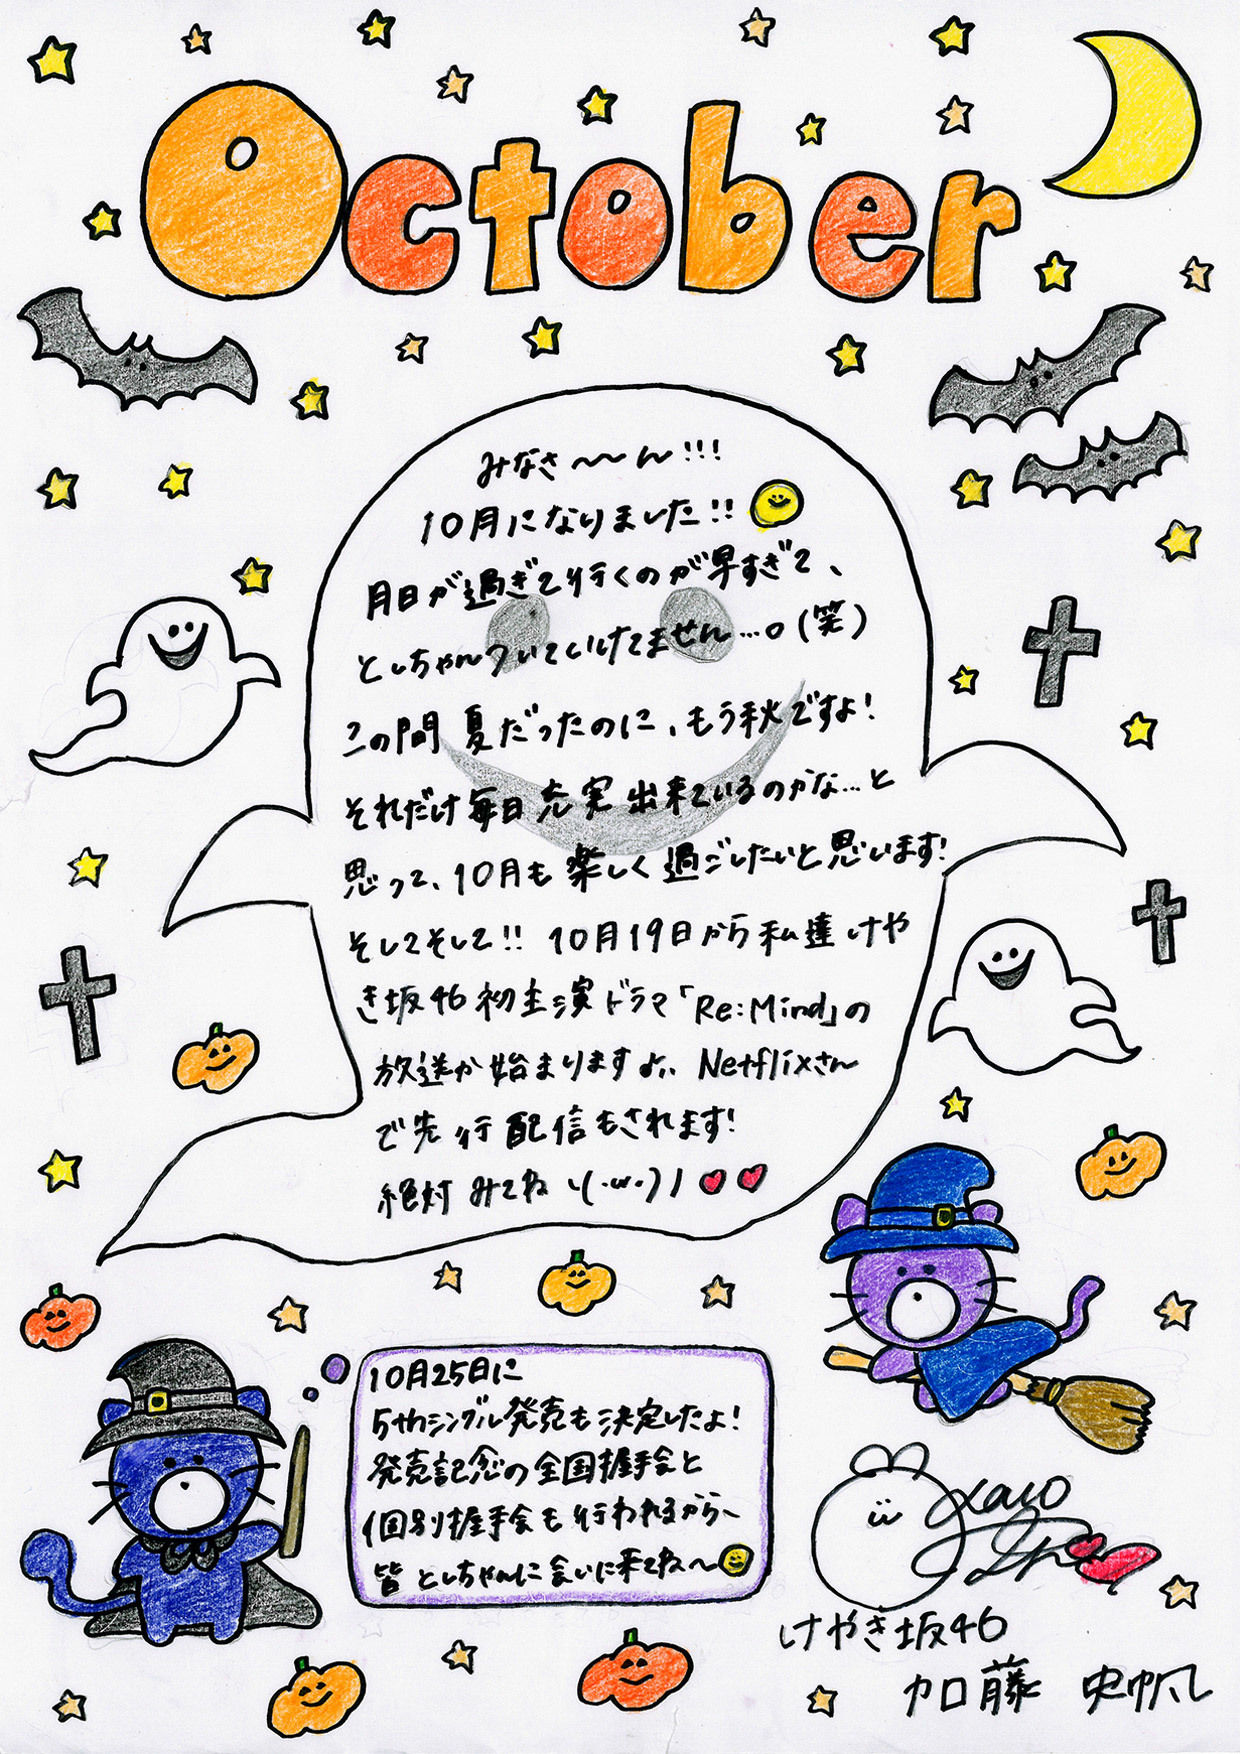 October
みなさ〜〜ん!!!
10月になりました!!
月日が過ぎて行くのが早すぎて、
としちゃんついていけてません…。(笑)
この間夏だったのに、もう秋ですよ!
それだけ毎日充実出来ているのかな…と
思って、10月も楽しく過ごしたいと思います!
そしてそして!! 10月19日から私達けや
き坂46初主演ドラマ「Re:Mind」の
放送が始まりますよ、、Netflixさん
で先行配信もされます!
絶対みてね \(・ω・)/
10月25日に
5thシングル発売も決定したよ!
発売記念の全国握手会と
個別握手会も行われるから、
皆としちゃんに会いに来てね〜
けやき坂46
加藤 史帆